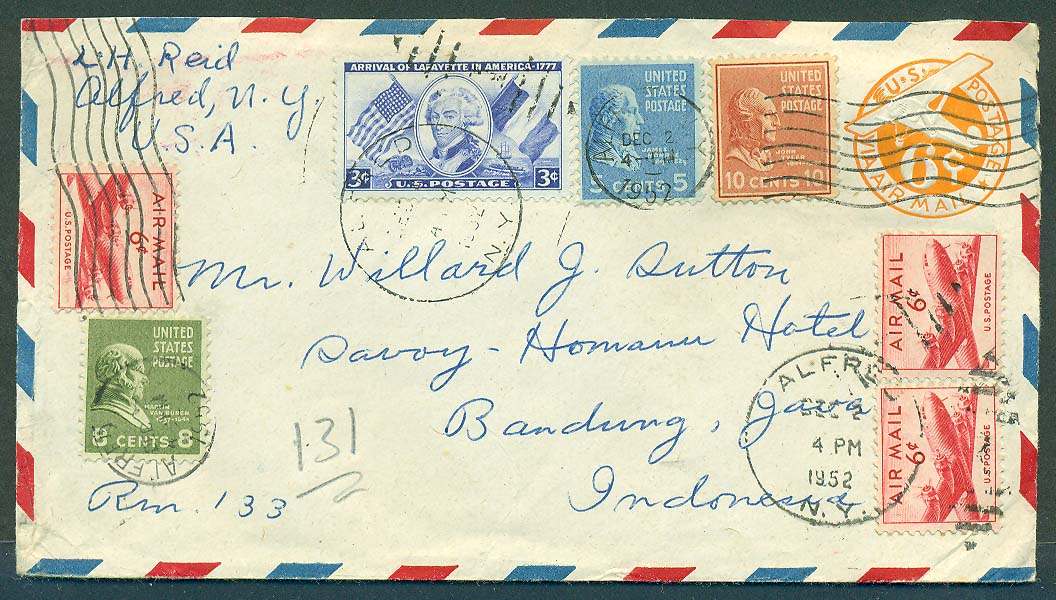 L.H. Reid
Alfred, N.Y.
U.S.A.
ARRIVAL OF LAFAYETTE IN AMERICA-1777
3¢ U.S. POSTAGE 3¢
UNITED
STATES
POSTAGE
JAMES
MONROE
5 CENTS 5
UNITED
STATES
POSTAGE
JOHN
TYLER
10 CENTS 10
U.S. POSTAGE
6¢
VIA AIR MAIL
DEC 2
4
1952
N.Y.
AIR MAIL
6¢
U.S. POSTAGE
UNITED
STATES
POSTAGE
MARTIN
VAN BUREN
1837-1841
8 CENTS 8
ALFRE
Mr. Willard J. Sutton
Savoy-Homann Hotel
Bandung, Java
Indonesia
Rm. 133
131
AIR MAIL
6¢
U.S. POSTAGE
AIR MAIL
6¢
U.S. POSTAGE
ALFRE
DEC 2
4 PM
1952
N.Y.